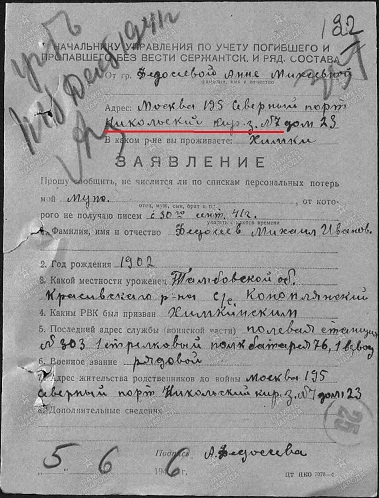 192
НАЧАЛЬНИКУ УПРАВЛЕНИЯ ПО УЧЕТУ ПОГИБШЕГО И
ПРОПАВШЕГО БЕЗ ВЕСТИ СЕРЖАНТСК. И РЯД. СОСТАВА
От гр. Федосеевой Анне Михеевной
Адрес: Москва 195 Северний порт
Никольский кир. з. №7 дом 23
В каком р-не вы проживаете: Химки
ЗАЯВЛЕНИЕ
Прошу сообщить, не числится ли по спискам персональных потерь
мой муж. , от кото-
рого не получаю писем с 30го сент. 41г.
1. Фамилия, имя и отчество Федосеев Михаил Иванов.
2. Год рождения 1902
3. Какой местности уроженец Тамбовской об.
Красивского р-на с/с. Коноплянский
4. Каким РВК был призван Химкинским
5. Последний адрес службы (воинской части) полевая станция
№ 303 1 стрелковый полк батарея 76, 1 взвод
6. Военное звание рядовой
7. Адрес жительства родственников до войны Москва 195
Северный порт Никольский кир. з. №7 дом 23
8. Дополнительные сведения
25
5 6 6 Подпись А. Федосеева